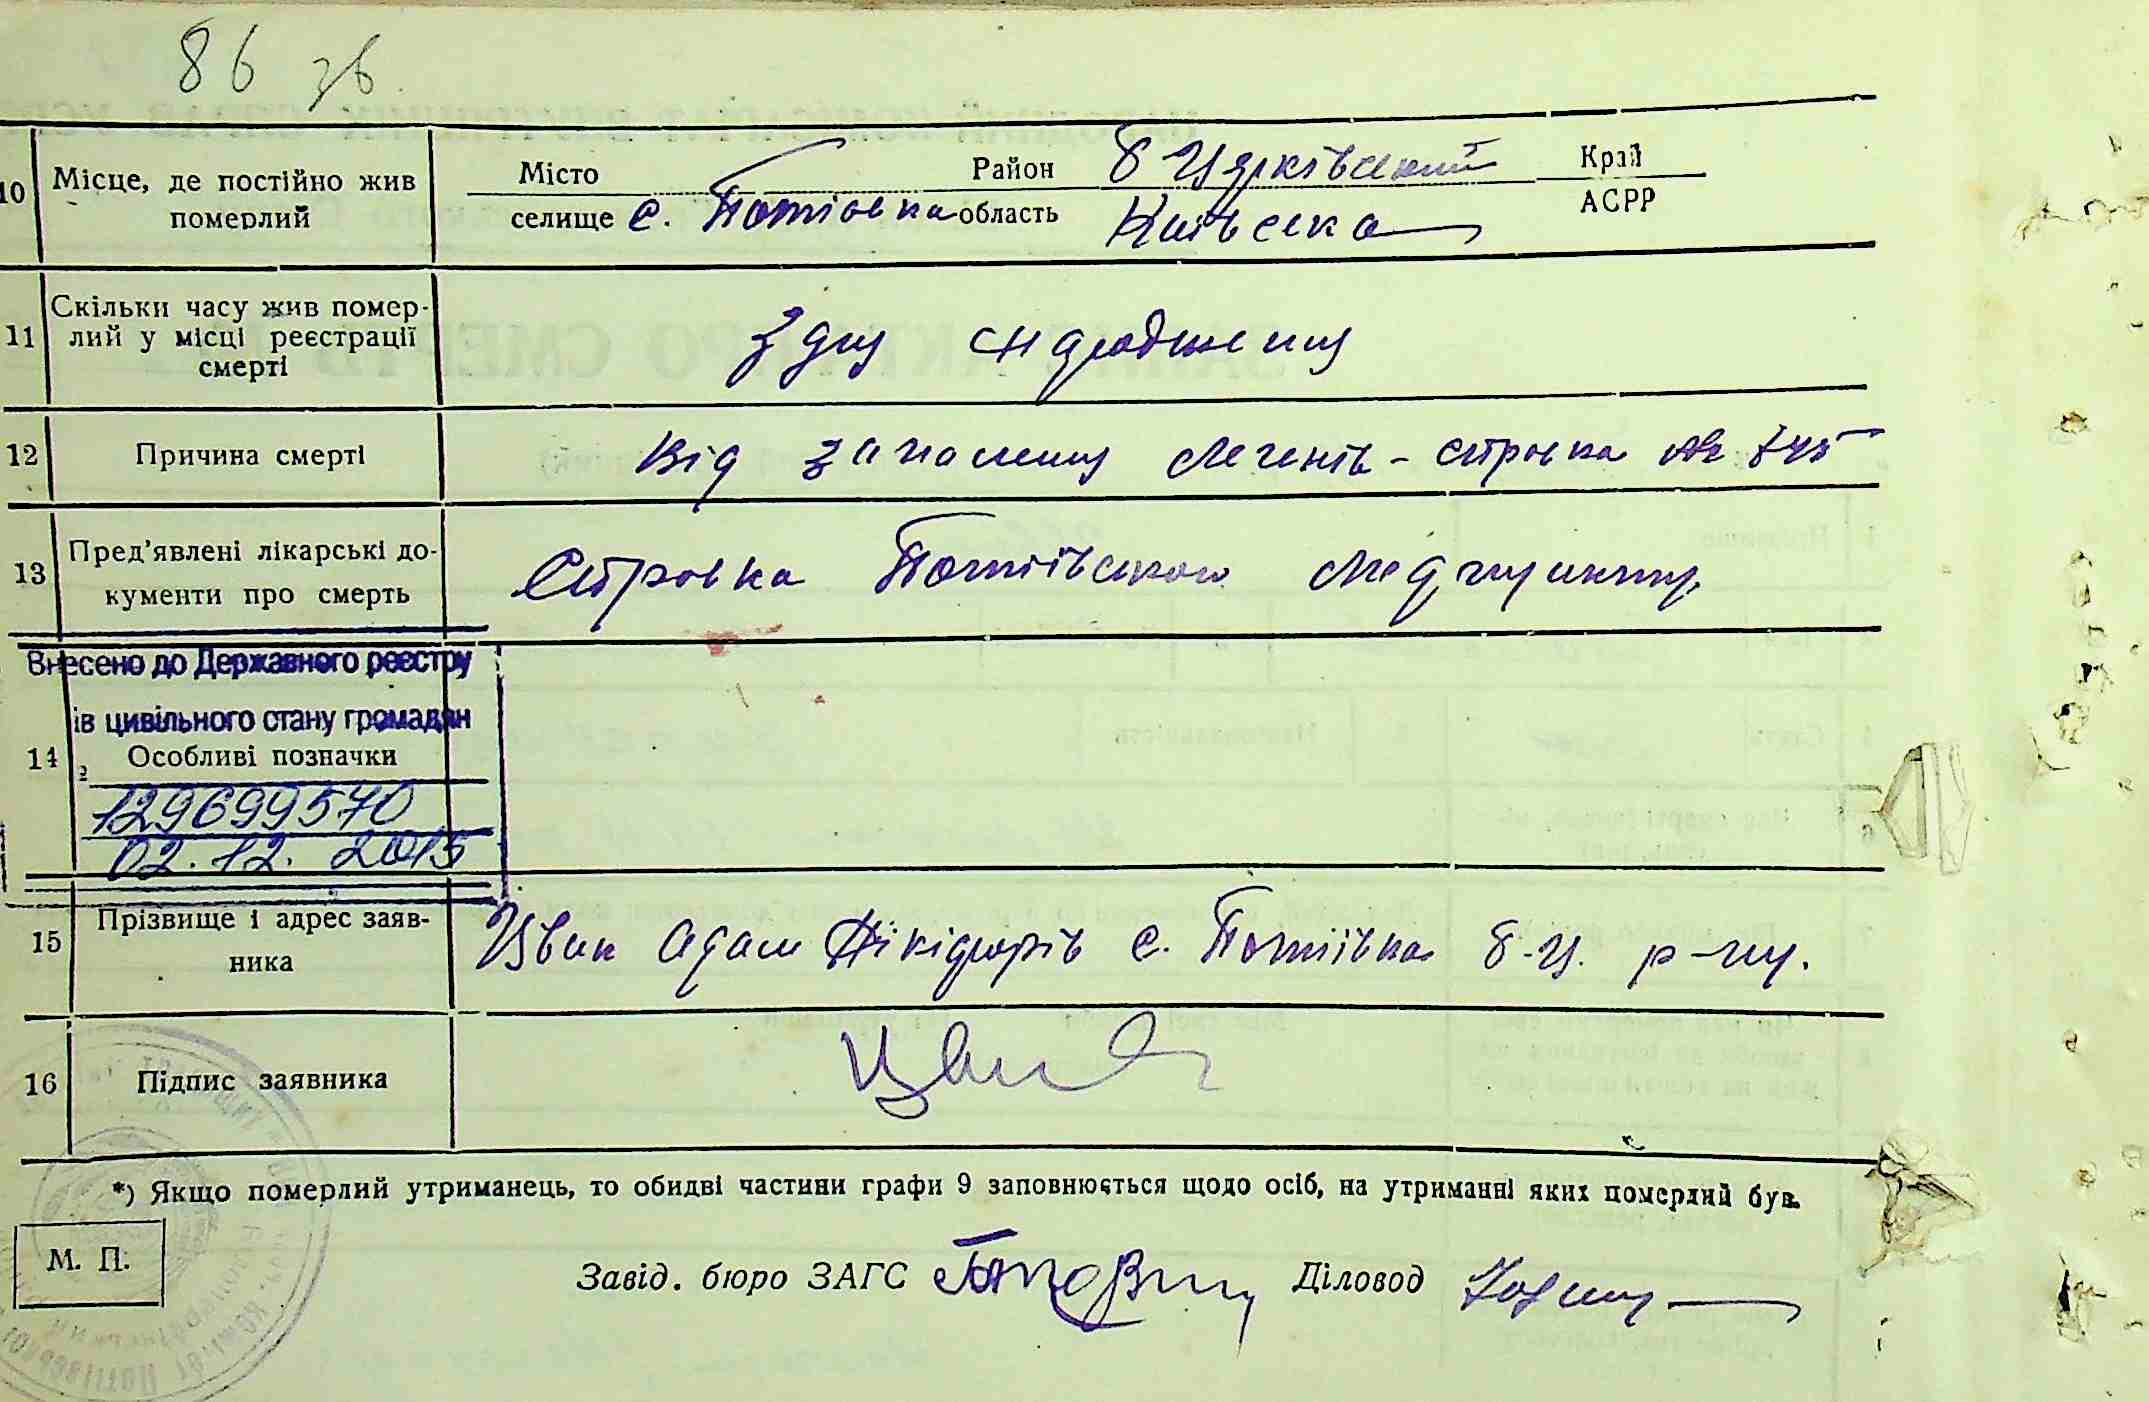 86 зв.
10 Місце, де постійно жив померлий
Місто Район Б Церківський Край
селище с. Потіївка область Київська АСРР
11 Скільки часу жив померлий у місці реєстрації смерті
З дня народження
12 Причина смерті
Від запалення легенів - справка №
13 Пред'явлені лікарські документи про смерть
Справка Потіївського медпункту
Внесено до Державного реєстру
ів цивільного стану громадян
14 Особливі позначки
129699570
02.12.2015
15 Прізвище і адрес заявника
Цвик Адам Нікіфорів с. Потіївка Б-Ц. р-ну.
16 Підпис заявника
*) Якщо померлий утриманець, то обидві частини графи 9 заповнюється щодо осіб, на утриманні яких померлий був.
М. П.
Завід. бюро ЗАГС Діловод